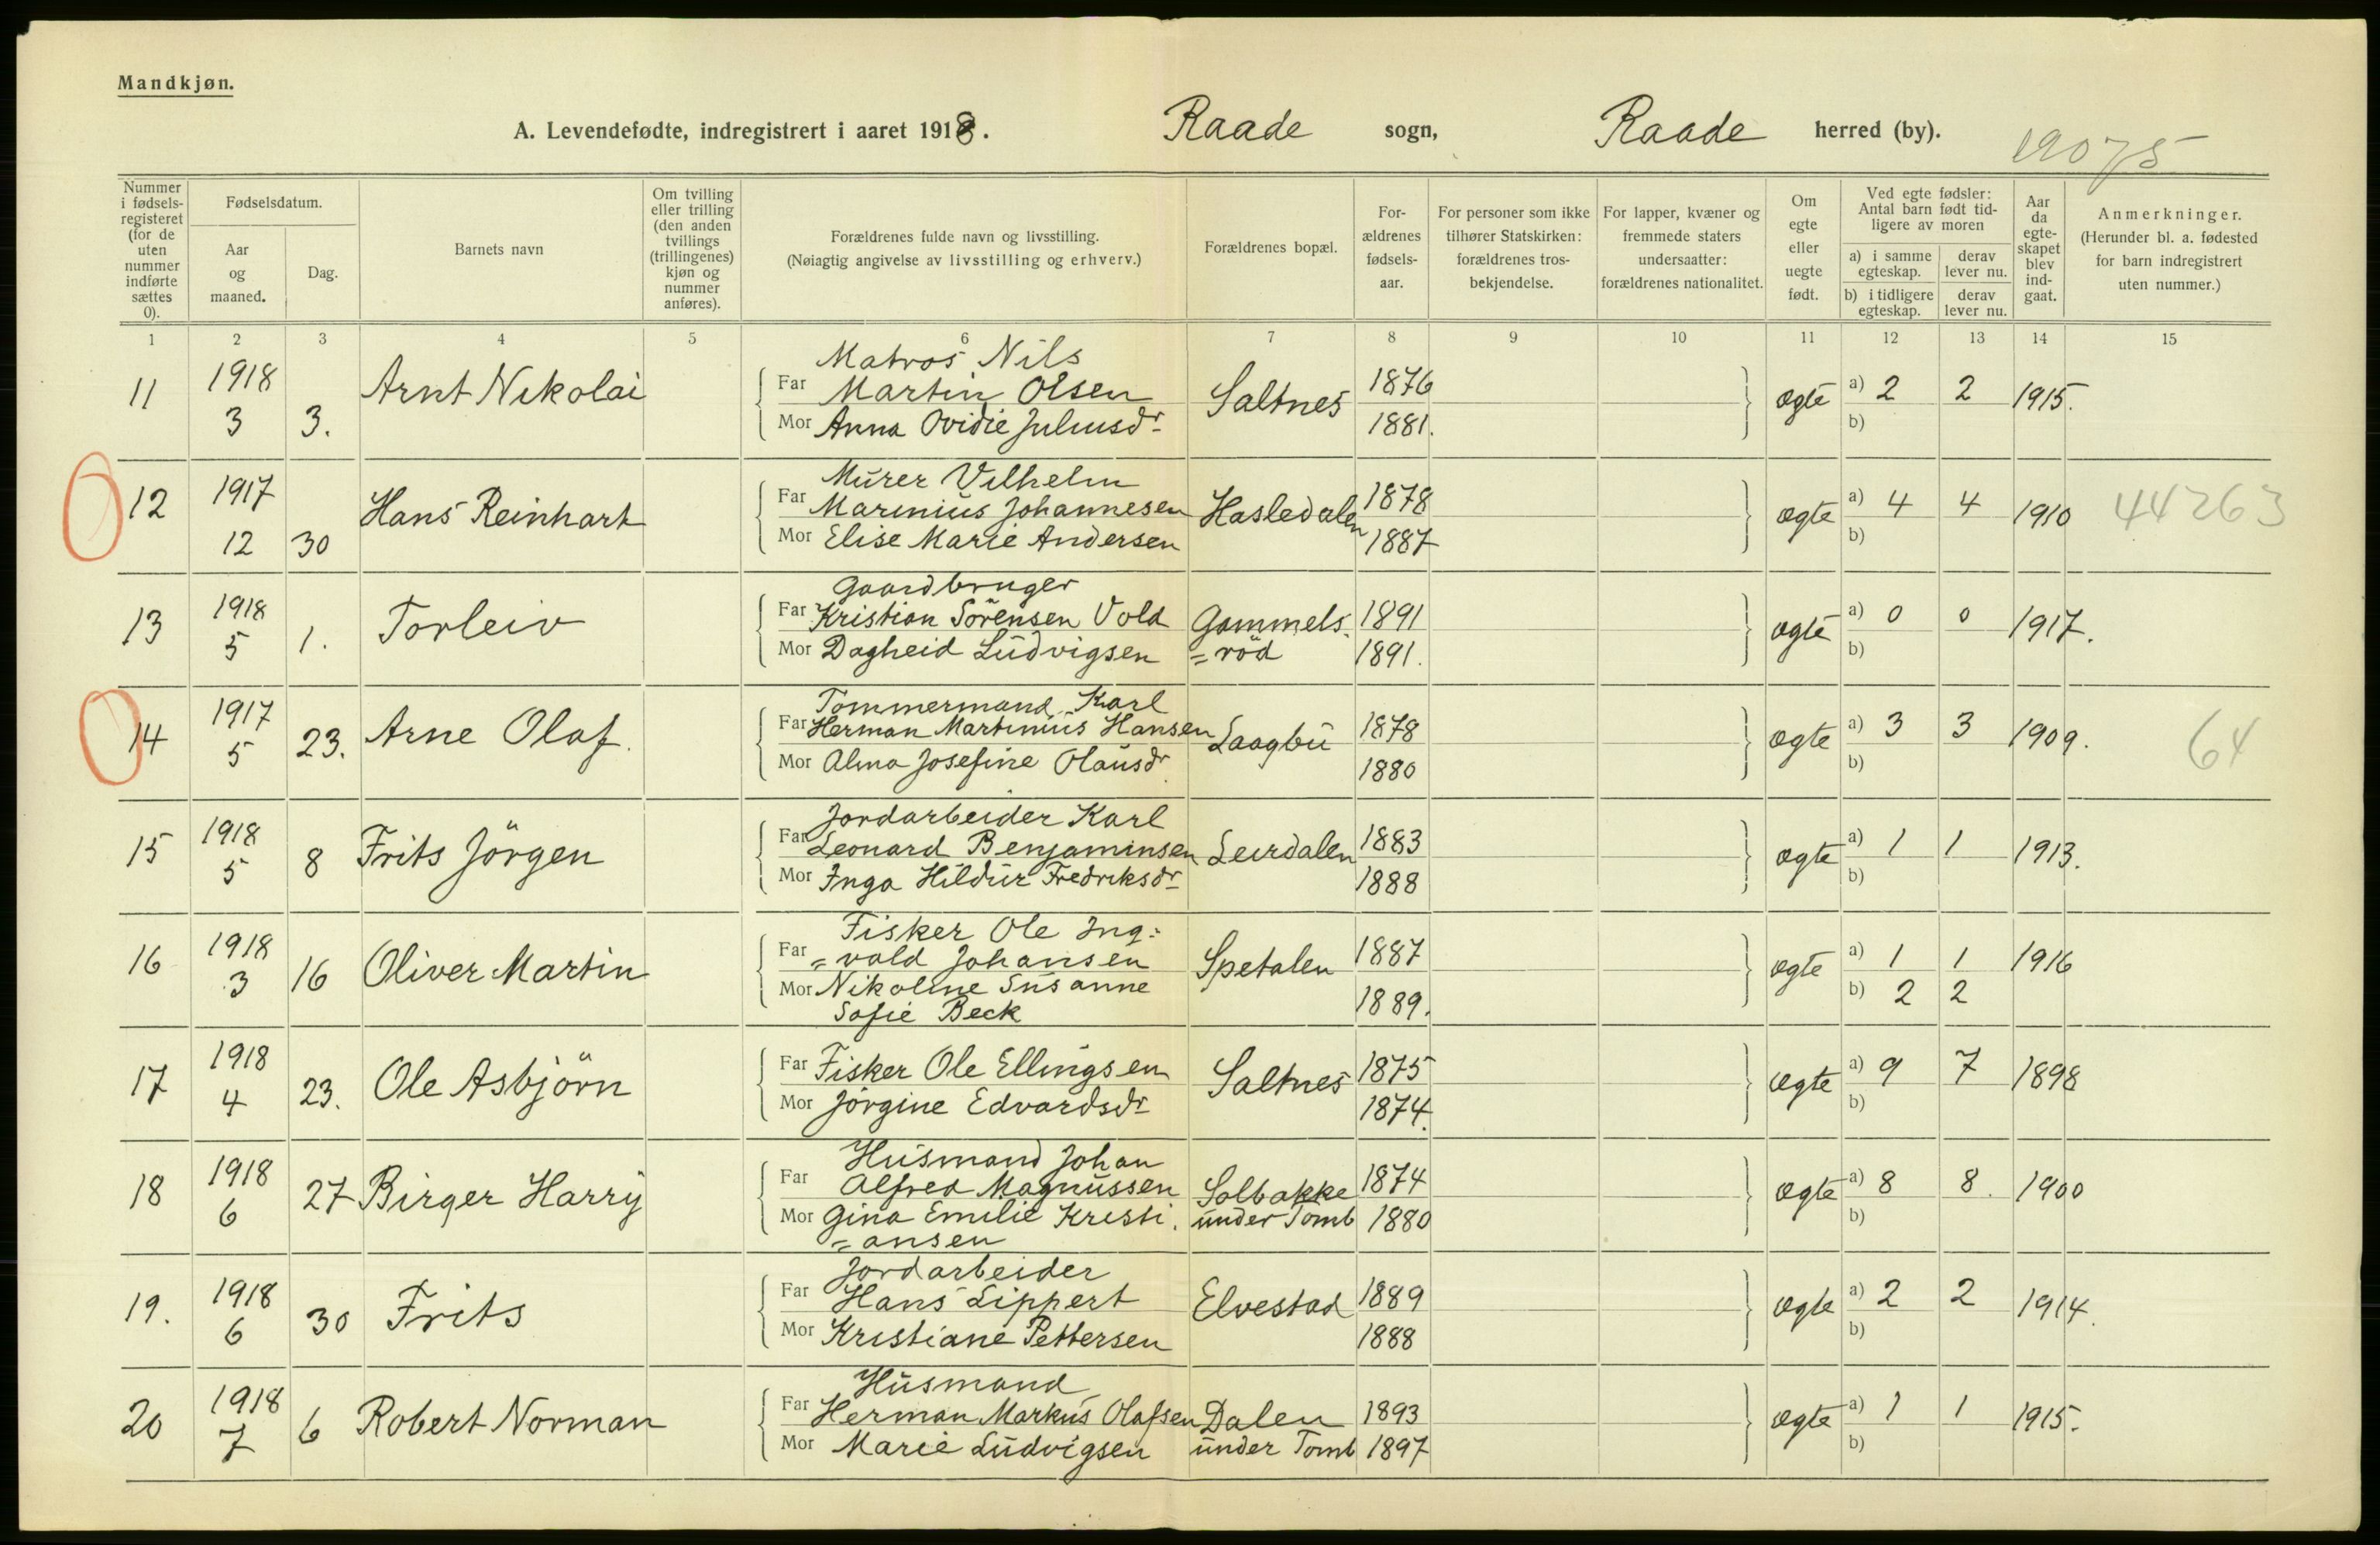 Mandkjøn.
A. Levendefødte, indregistrert i aaret 1918. Raade sogn, Raade herred (by).
19075
Nummer i fødsels-registeret (for de uten nummer indførte sættes 0).
Fødselsdatum.
Aar og maaned.
Dag.
Barnets navn
Om tvilling eller trilling (den anden tvillings (trillingenes) kjøn og nummer anføres).
Forældrenes fulde navn og livsstilling.
(Nøiagtig angivelse av livsstilling og erhverv.)
Forældrenes bopæl.
For-ældrenes fødsels-aar.
For personer som ikke tilhører Statskirken: forældrenes tros-bekjendelse.
For lapper, kvæner og fremmede staters undersaatter: forældrenes nationalitet.
Om egte eller uegte født.
Ved egte fødsler: Antal barn født tid-ligere av moren
a) i samme egteskap.
derav lever nu.
b) i tidligere egteskap.
derav lever nu.
Aar da egte-skapet blev ind-gaat.
Anmerkninger.
(Herunder bl. a. fødested for barn indregistrert uten nummer.)
1 2 3 4 5 6 7 8 9 10 11 12 13 14 15
Matros Nils
11 1918 Arnt Nikolai Far Martin Olsen Saltnes 1876 ægte a) 2 2 1915.
3 3. Mor Anna Ovidie Juliusdr 1881. b)
Murer Vilhelm
12 1917 Hans Reinhart Far Marinius Johannesen Hasledalen 1878 ægte a) 4 4 1910 44263
12 30 Mor Elise Marie Andersen 1887 b)
Gaardbruger
13 1918 Torleiv Far Kristian Sörensen Vold Gammels- 1891 ægte a) 0 0 1917.
5 1. Mor Dagheid Ludvigsen =röd 1891. b)
Tommermand Karl
14 1917 Arne Olaf. Far Herman Martinius Hansen Laagbu 1878 ægte a) 3 3 1909. 64
5 23. Mor Alma Josefine Olausdr. 1880 b)
Jordarbeider Karl
15 1918 Frits Jörgen Far Leonard Benjaminsen Leirdalen 1883 ægte a) 1 1 1913.
5 8 Mor Inga Hildur Fredriksdr 1888 b)
Fisker Ole Ing=
16 1918 Oliver Martin Far =vald Johansen Spetalen 1887 ægte a) 1 1 1916
3 16 Mor Nikoline Susanne 1889. b) 2 2
Sofie Beck
17 1918 Ole Asbjörn Far Fisker Ole Ellingsen Saltnes 1875 ægte a) 9 7 1898
4 23. Mor Jörgine Edvardsdr 1874. b)
Husmand Johan
18 1918 Birger Harry Far Alfred Magnussen Solbakke 1874 ægte a) 8 8. 1900
6 27 Mor Gina Emilie Kristi. under Tomb 1880 b)
=ansen
Jordarbeider
19. 1918 Frits Far Hans Lippert Elvestad 1889 ægte a) 2 2 1914.
6 30 Mor Kristiane Pettersen 1888 b)
Husmand
20 1918 Robert Norman Far Herman Markus Olafsen Dalen 1893 ægte a) 1 1 1915.
7 6 Mor Marie Ludvigsen under Tomb 1897 b)